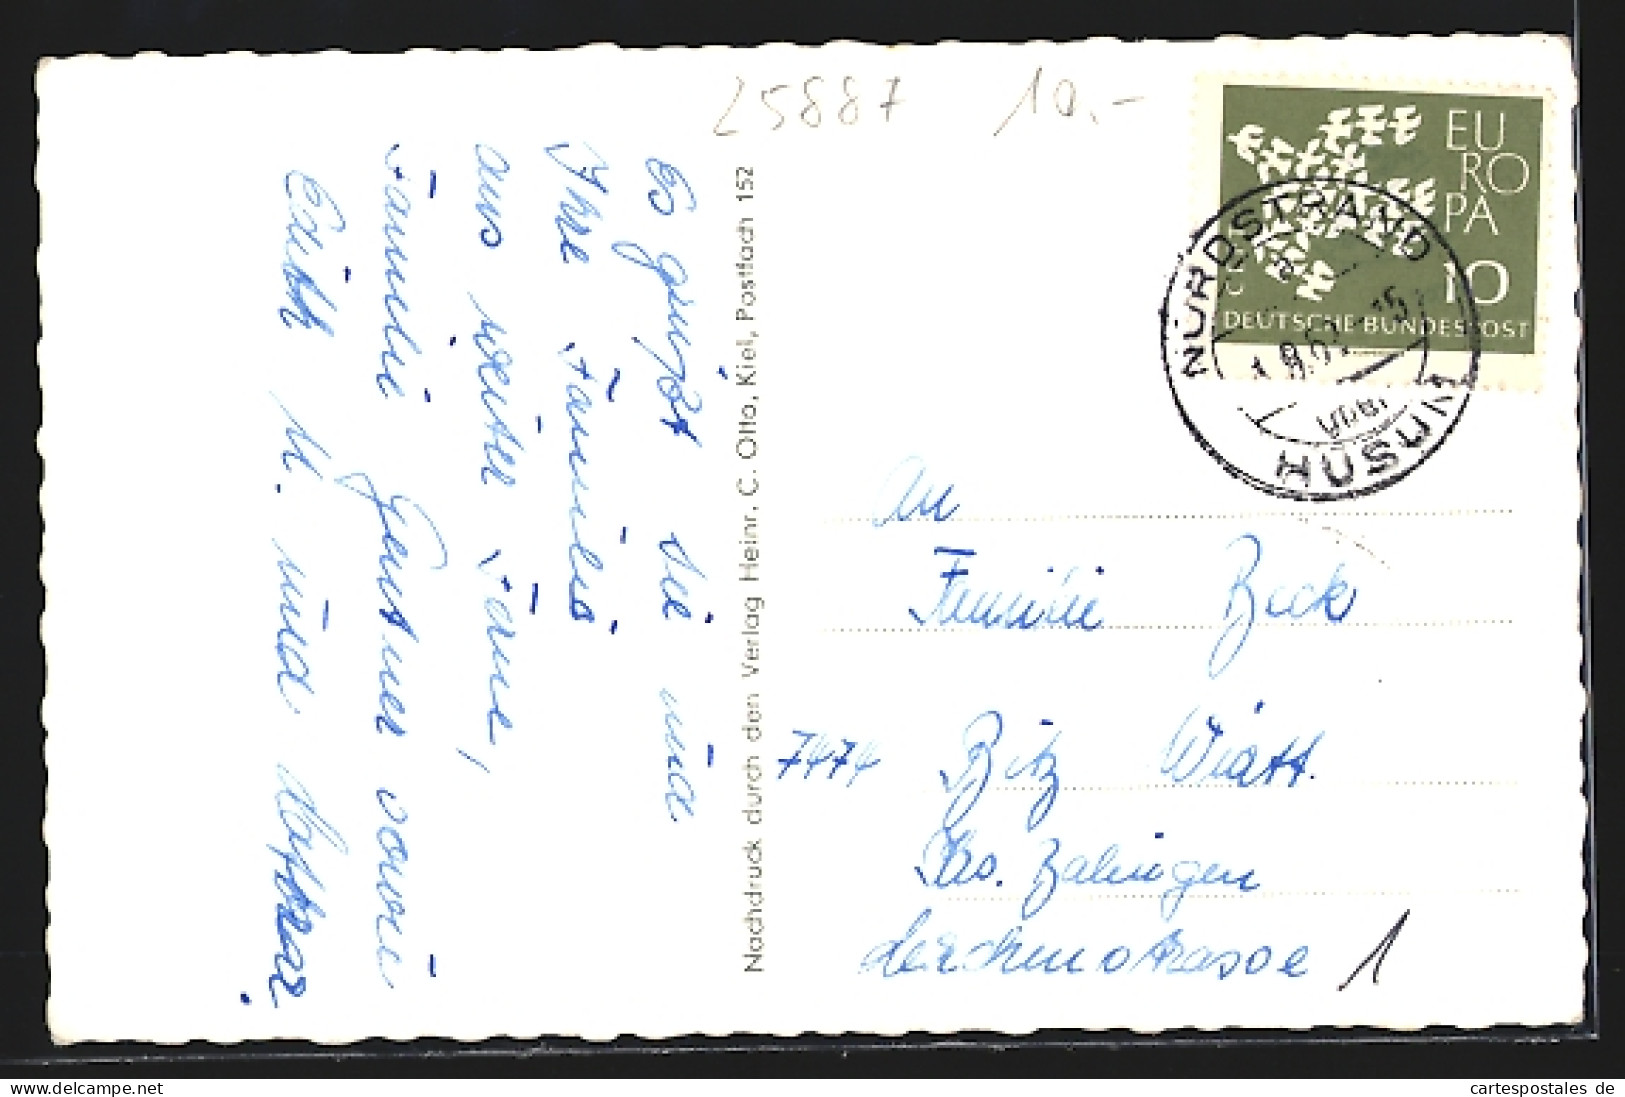 25887 10.-
Es grüßt Sie und
Ihre Familie
aus weiter Ferne,
Familie
Edith und
Nachdruck durch den Verlag Heinr. C. Otto, Kiel, Postfach 152
EU
RO
PA
10
DEUTSCHE BUNDESPOST
NORDSTRAND
HUSUM
An
Familie Beck
7474 Bitz Württ.
Krs. Balingen
Lerchenstrasse 1
Privat
cartespostales de